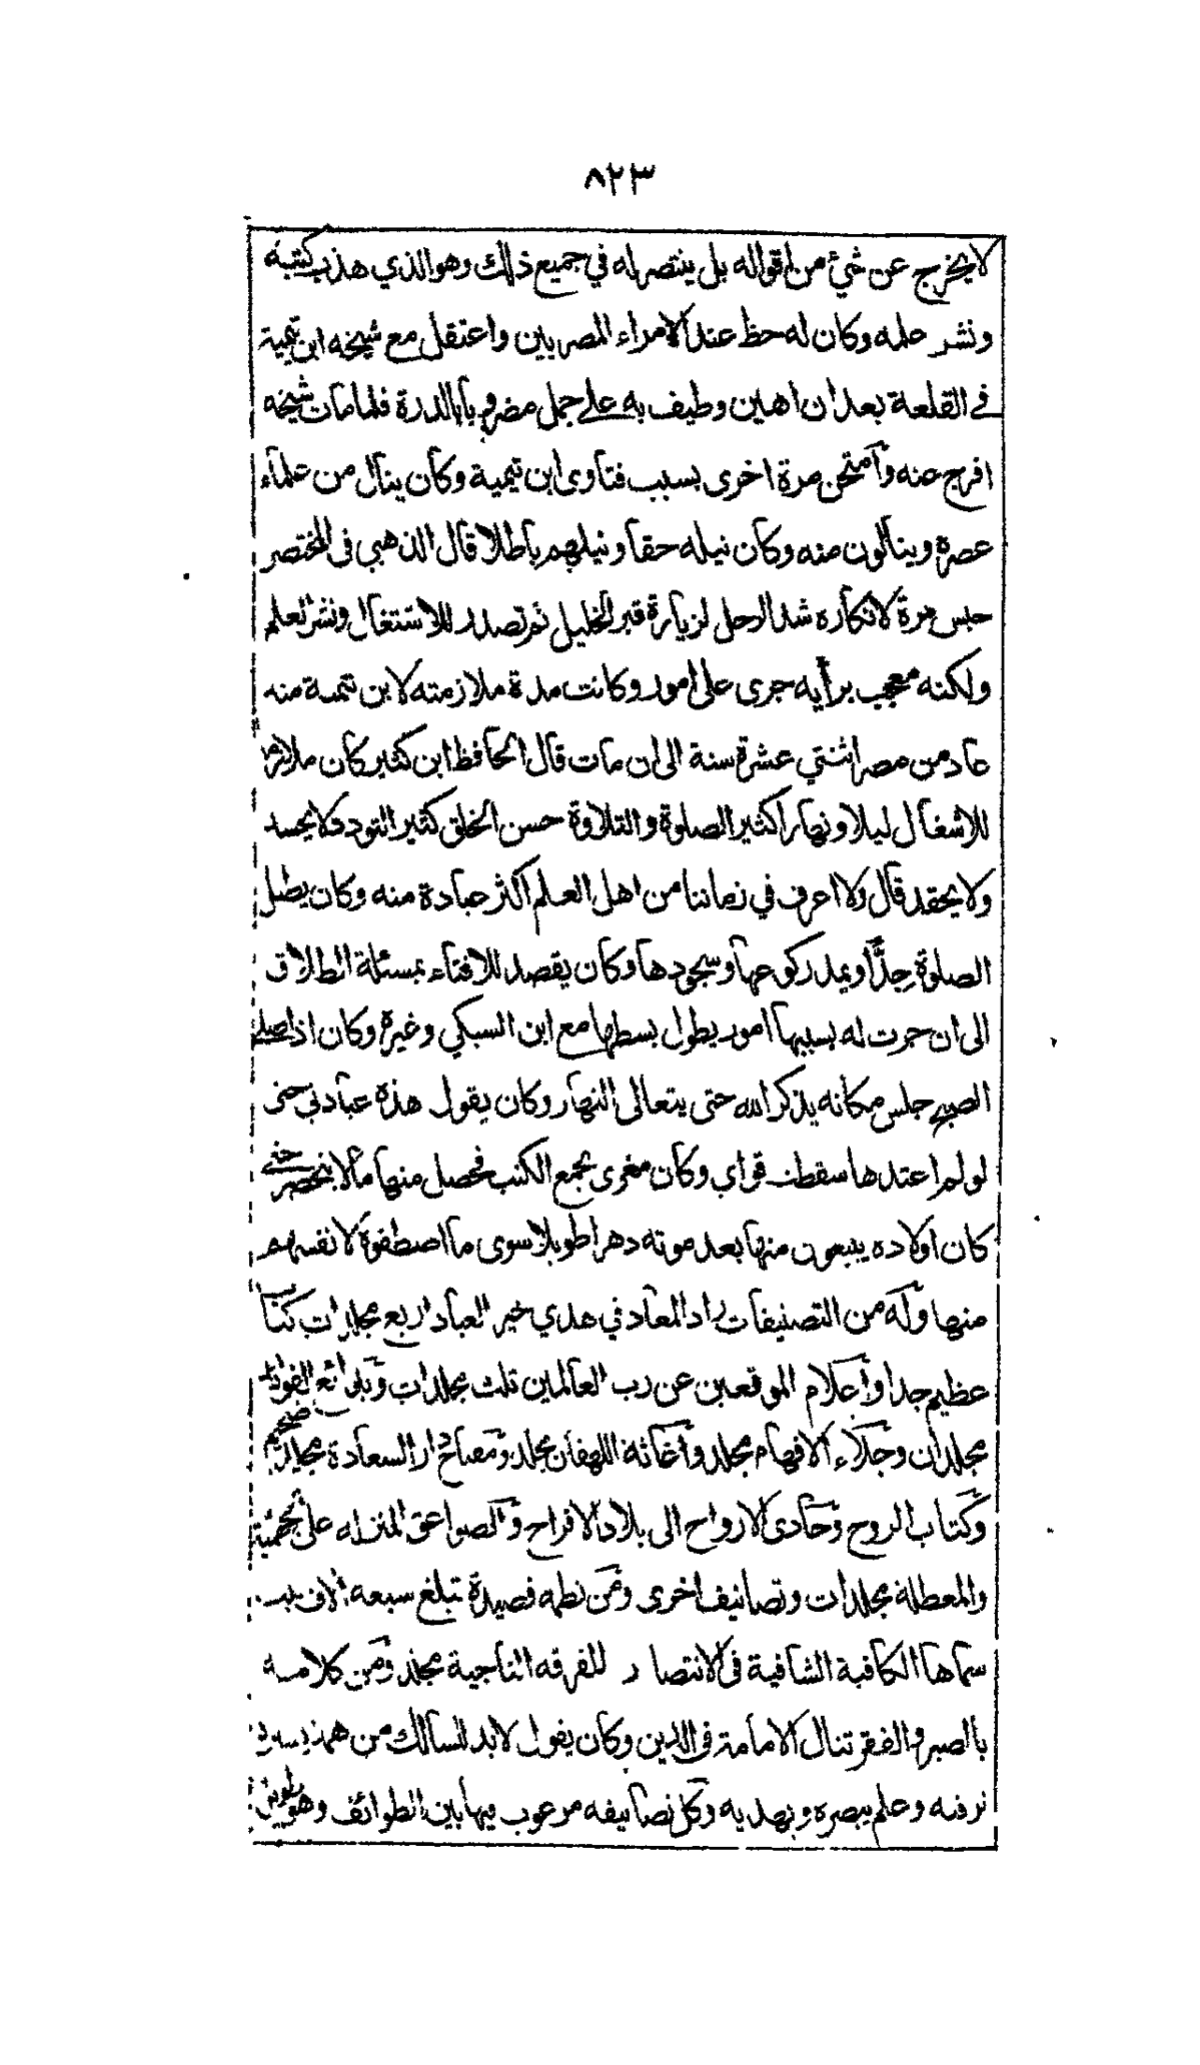 ٨٢٣
لا يخرج عن شيء من اقواله بل ينتصر له في جميع ذلك وهو الذي هذب كتبه
ونشر علمه وكان له حظ عند الامراء المصريين واعتقل مع شيخه ابن تيمية
في القلعة بعد ان اهين وطيف به على جمل مضروبا بالدرة فلما مات شيخه
افرج عنه وامتحن مرة اخرى بسبب فتاوى ابن تيمية وكان ينال من علماء
عصره وينالون منه وكان نيله حقا ونيلهم باطلا قال الذهبي في المختصر
حبس مرة لانكاره شد الرحل لزيارة قبر الخليل ثم تصدر للاشتغال ونشر العلم
ولكنه معجب برأيه جرى على امور وكانت مدة ملازمته لابن تيمية منذ
عاد من مصر اثنتي عشرة سنة الى ان مات قال الحافظ ابن كثير كان ملازما
للاشغال ليلا ونهارا كثير الصلوة والتلاوة حسن الخلق كثير التودد لا يحسد
ولا يحقد قال ولا اعرف في زماننا من اهل العلم اكثر عبادة منه وكان يطيل
الصلوة جدًّا ويمد ركوعها وسجودها وكان يقصد للافتاء بمسئلة الطلاق
الى ان جرت له بسببها امور يطول بسطها مع ابن السبكي وغيره وكان اذا صلى
الصبح جلس مكانه يذكر الله حتى يتعالى النهار وكان يقول هذه عبادتي حتى
لو لم اعتدها سقطت قواي وكان مغرى بجمع الكتب فحصل منها ما لا ينحصر حتى
كان اولاده يبيعون منها بعد موته دهرا طويلا سوى ما اصطفوه لانفسهم
منها وله من التصنيفات زاد المعاد في هدي خير العباد اربع مجلدات كتاب
عظيم جدا واعلام الموقعين عن رب العالمين ثلث مجلدات وبدائع الفوائد
مجلدان وجلاء الافهام مجلد واغاثة اللهفان مجلد ومفتاح دار السعادة مجلد ضخم
وكتاب الروح وحادى الارواح الى بلاد الافراح والصواعق المنزله على الجهمية
والمعطلة مجلدات وتصانيف اخرى ومن نظمه قصيدة تبلغ سبعه الاف بيت
سماها الكافية الشافية في الانتصار للفرقه الناجية مجلد ومن كلامه
بالصبر والفقر تنال الامامة في الدين وكان يقول لا بد للسالك من همة
ترقيه وعلم يبصره ويهديه وكل تصانيفه مرغوب فيها بين الطوائف وهو طويل